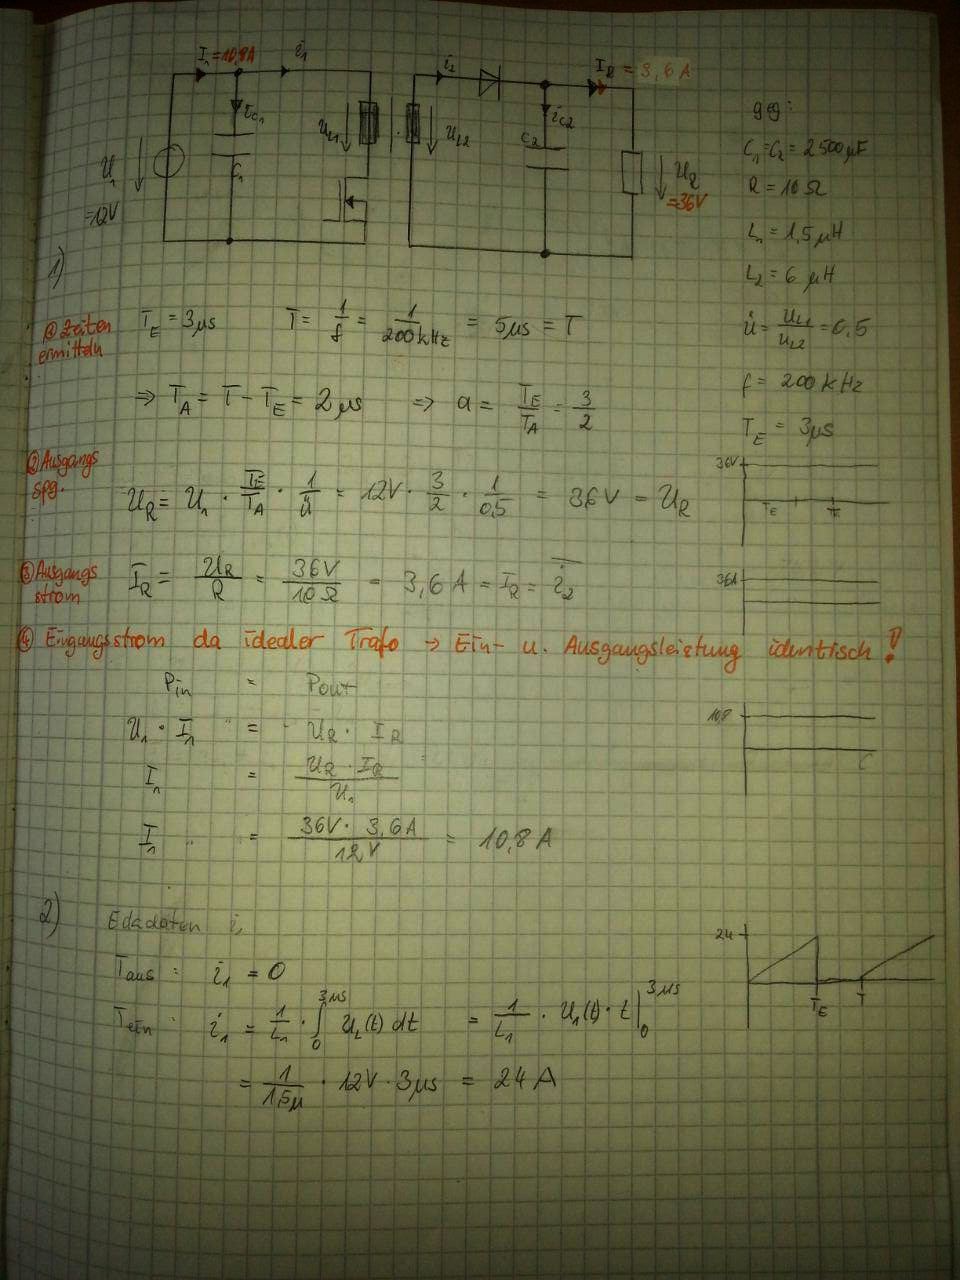 I₁ = 10,8A
i₁
i₂
I_R = 3,6 A
i_C1
C₁
U₁ = 12V
u_L1
u_L2
C₂
i_C2
U_R = 36V
geg:
C₁ = C₂ = 2500 µF
R = 10 Ω
L₁ = 1,5 µH
L₂ = 6 µH
ü = u_L1 / u_L2 = 0,5
f = 200 kHz
T_E = 3µs
1)
① Zeiten ermitteln
T_E = 3µs T = 1/f = 1/200kHz = 5µs = T
⇒ T_A = T - T_E = 2µs ⇒ a = T_E/T_A = 3/2
② Ausgangs spg.
U_R = U₁ · T_E/T_A · 1/ü = 12V · 3/2 · 1/0,5 = 36V = U_R
36V
T_E T
③ Ausgangs strom
I_R = U_R/R = 36V/10Ω = 3,6 A = I_R = i₂
3,6A
④ Eingangsstrom da idealer Trafo → Ein- u. Ausgangsleistung identisch!
Pin = Pout
U₁ · I₁ = U_R · I_R
I₁ = U_R · I_R / U₁
I₁ = 36V · 3,6A / 12V = 10,8 A
10,8
2)
i₁
Taus: i₁ = 0
Tein: i₁ = 1/L₁ · ∫₀^3µs U_L(t) dt = 1/L₁ · U₁(t) · t |₀^3µs
= 1/1,5µ · 12V · 3µs = 24 A
24
T_E T